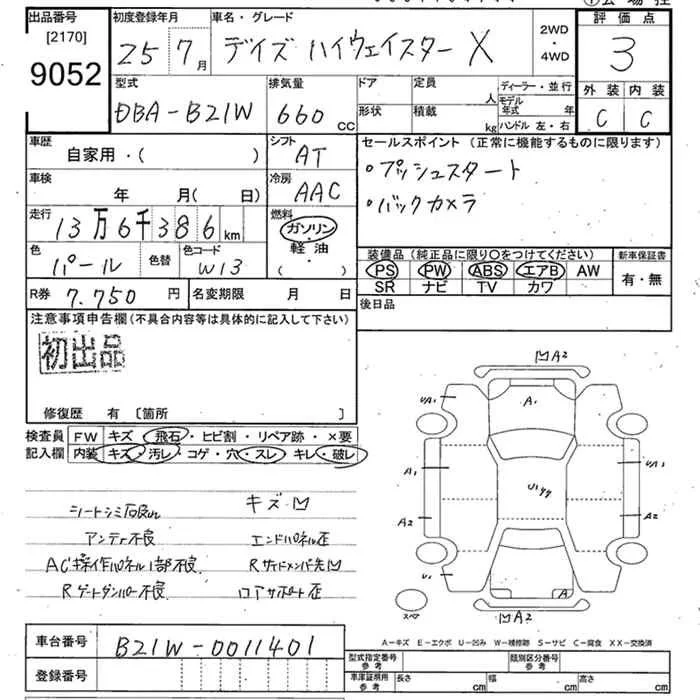 出品番号
[2170]
9052
初度登録年月
25 7月
車名・グレード
デイズ ハイウェイスター X
2WD
・
4WD
評価点
3
外装 内装
C C
型式
DBA-B21W
排気量
660 CC
ドア
形状
定員 人
積載 kg
ディーラー・並行
モデル年式 年
ハンドル 左・右
車歴
自家用・( )
シフト
AT
セールスポイント (正常に機能するものに限ります)
・プッシュスタート
・バックカメラ
車検
年 月( 日)
冷房
AAC
走行
13万6千386km
燃料
ガソリン
・
軽油
( )
色
パール
色替
色コード
W13
装備品(純正品に限り○をつけてください)
PS PW ABS エアB AW
SR ナビ TV カワ
新車保証書
有・無
R券 7.750円
名変期限 月 日
後日品
注意事項申告欄(不具合内容等は具体的に記入して下さい)
初出品
修復歴 有 〔箇所 〕
検査員
記入欄
FW キズ・飛石・ヒビ割・リペア跡・×要
内装 キズ・汚レ・コゲ・穴・スレ・キレ・破レ
キズ凹
アンテナ不良
エンドパネル歪
AC操作パネル1部不良
Rサイドメンバー先凹
Rゲートダンパー不良
ロアサポート歪
凹A2
UA1
A1
A1
UA1
A2
A2
U1
A
凹A2
スペア
A-キズ E-エクボ U-凹み W-補修跡 S-サビ C-腐食 XX-交換済
車台番号
B21W-0011401
登録番号
型式指定番号
参考
類別区分番号
参考
車庫証明用
参考
長さ cm
幅 cm
高さ cm